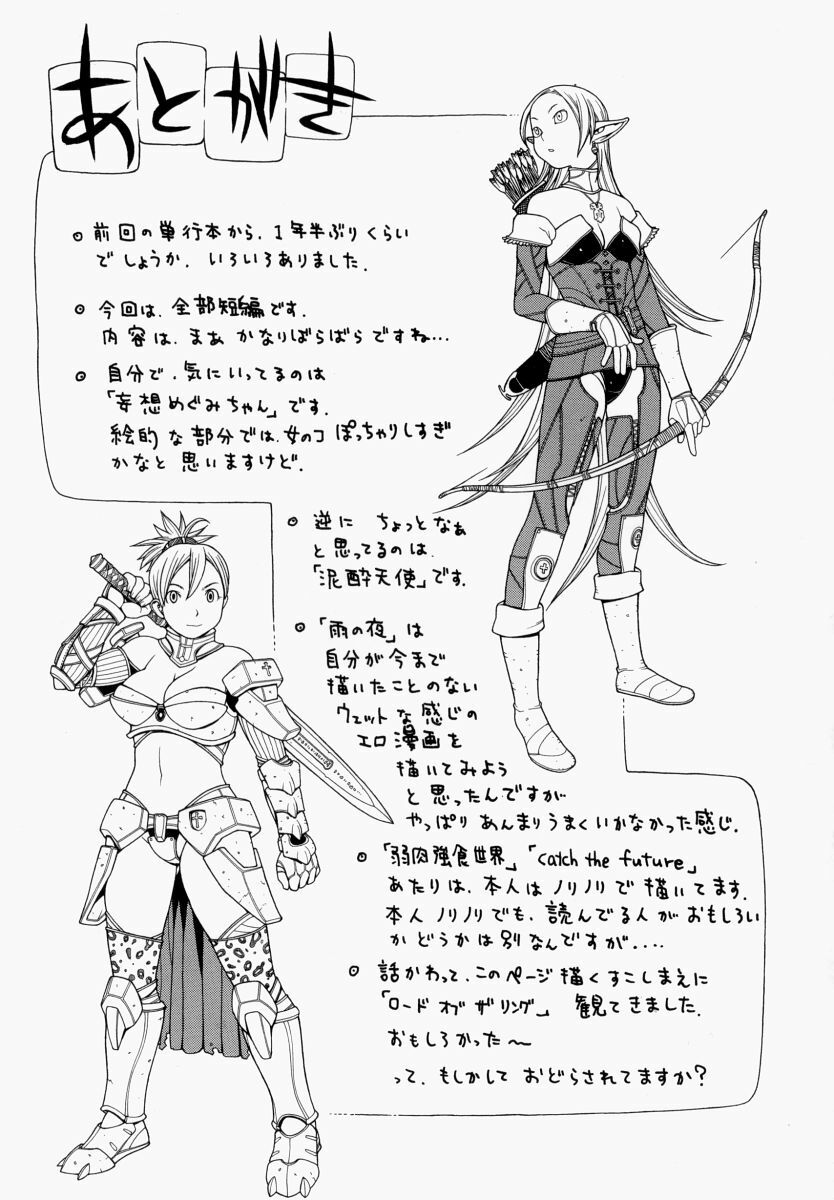 あとがき
◦ 前回の単行本から、1年半ぶりくらい
でしょうか。いろいろありました。
◦ 今回は、全部短編です。
内容は、まぁ かなりばらばらですね…
◦ 自分で、気にいってるのは
「妄想めぐみちゃん」です。
絵的な部分では、女のコ ぽっちゃりしすぎ
かなと 思いますけど。
◦ 逆に ちょっとなぁ
と思ってるのは、
「泥酔天使」です。
◦ 「雨の夜」は
自分が今まで
描いたことのない
ウェットな感じの
エロ漫画を
描いてみよう
と思ったんですが
やっぱり あんまりうまくいかなかった感じ。
◦ 「弱肉強食世界」「catch the future」
あたりは、本人はノリノリで描いてます。
本人ノリノリでも、読んでる人がおもしろい
かどうかは別なんですが....
◦ 話かわって、このページ描くすこしまえに
「ロード オブ ザ リング」 観てきました。
おもしろかった〜
って、もしかして おどらされてますか?